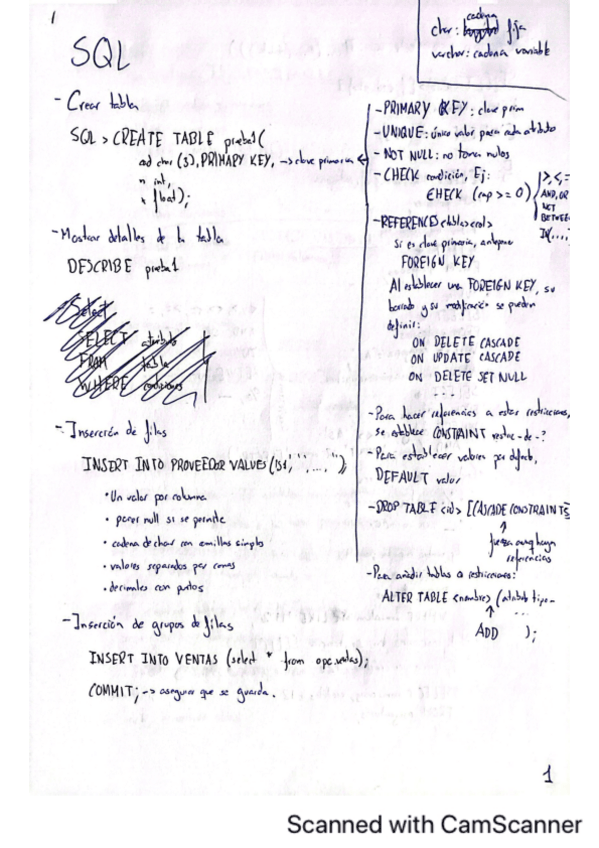 1
SQL
- Crear tabla
SQL > CREATE TABLE prueba1(
cad char(3), PRIMARY KEY, -> clave primaria
n int,
x float);
- Mostrar detalles de la tabla
DESCRIBE prueba1
Select
SELECT atributo
FROM tabla
WHERE condiciones
- Inserción de filas
INSERT INTO PROVEEDOR VALUES (
• Un valor por columna
• poner null si se permite
• cadena de char con comillas simples
• valores separados por comas
• decimales con puntos
- Inserción de grupos de filas
INSERT INTO VENTAS (select * from opc.ventas);
COMMIT; -> asegurar que se guarda.
cadena
char: fija
varchar: cadena variable
- PRIMARY KEY: clave prim
- UNIQUE: único valor para cada atributo
- NOT NULL: no toma nulos
- CHECK condición, Ej:
CHECK (cmp >= 0)
>, <, =
AND, OR
NOT
BETWEE
IN(...,
- REFERENCES
Si es clave primaria, antepone
FOREIGN KEY
Al establecer una FOREIGN KEY, su
borrado y su modificación se pueden
definir:
ON DELETE CASCADE
ON UPDATE CASCADE
ON DELETE SET NULL
- Para hacer referencias a estas restricciones,
se establece CONSTRAINT
- Para establecer valores por defecto,
DEFAULT valor
- DROP TABLE [CASCADE CONSTRAINTS
fuerza aunq haya
referencias
- Para añadir tablas o restricciones:
ALTER TABLE <nombre> (atributo tipo-
ADD );
1
Scanned with CamScanner